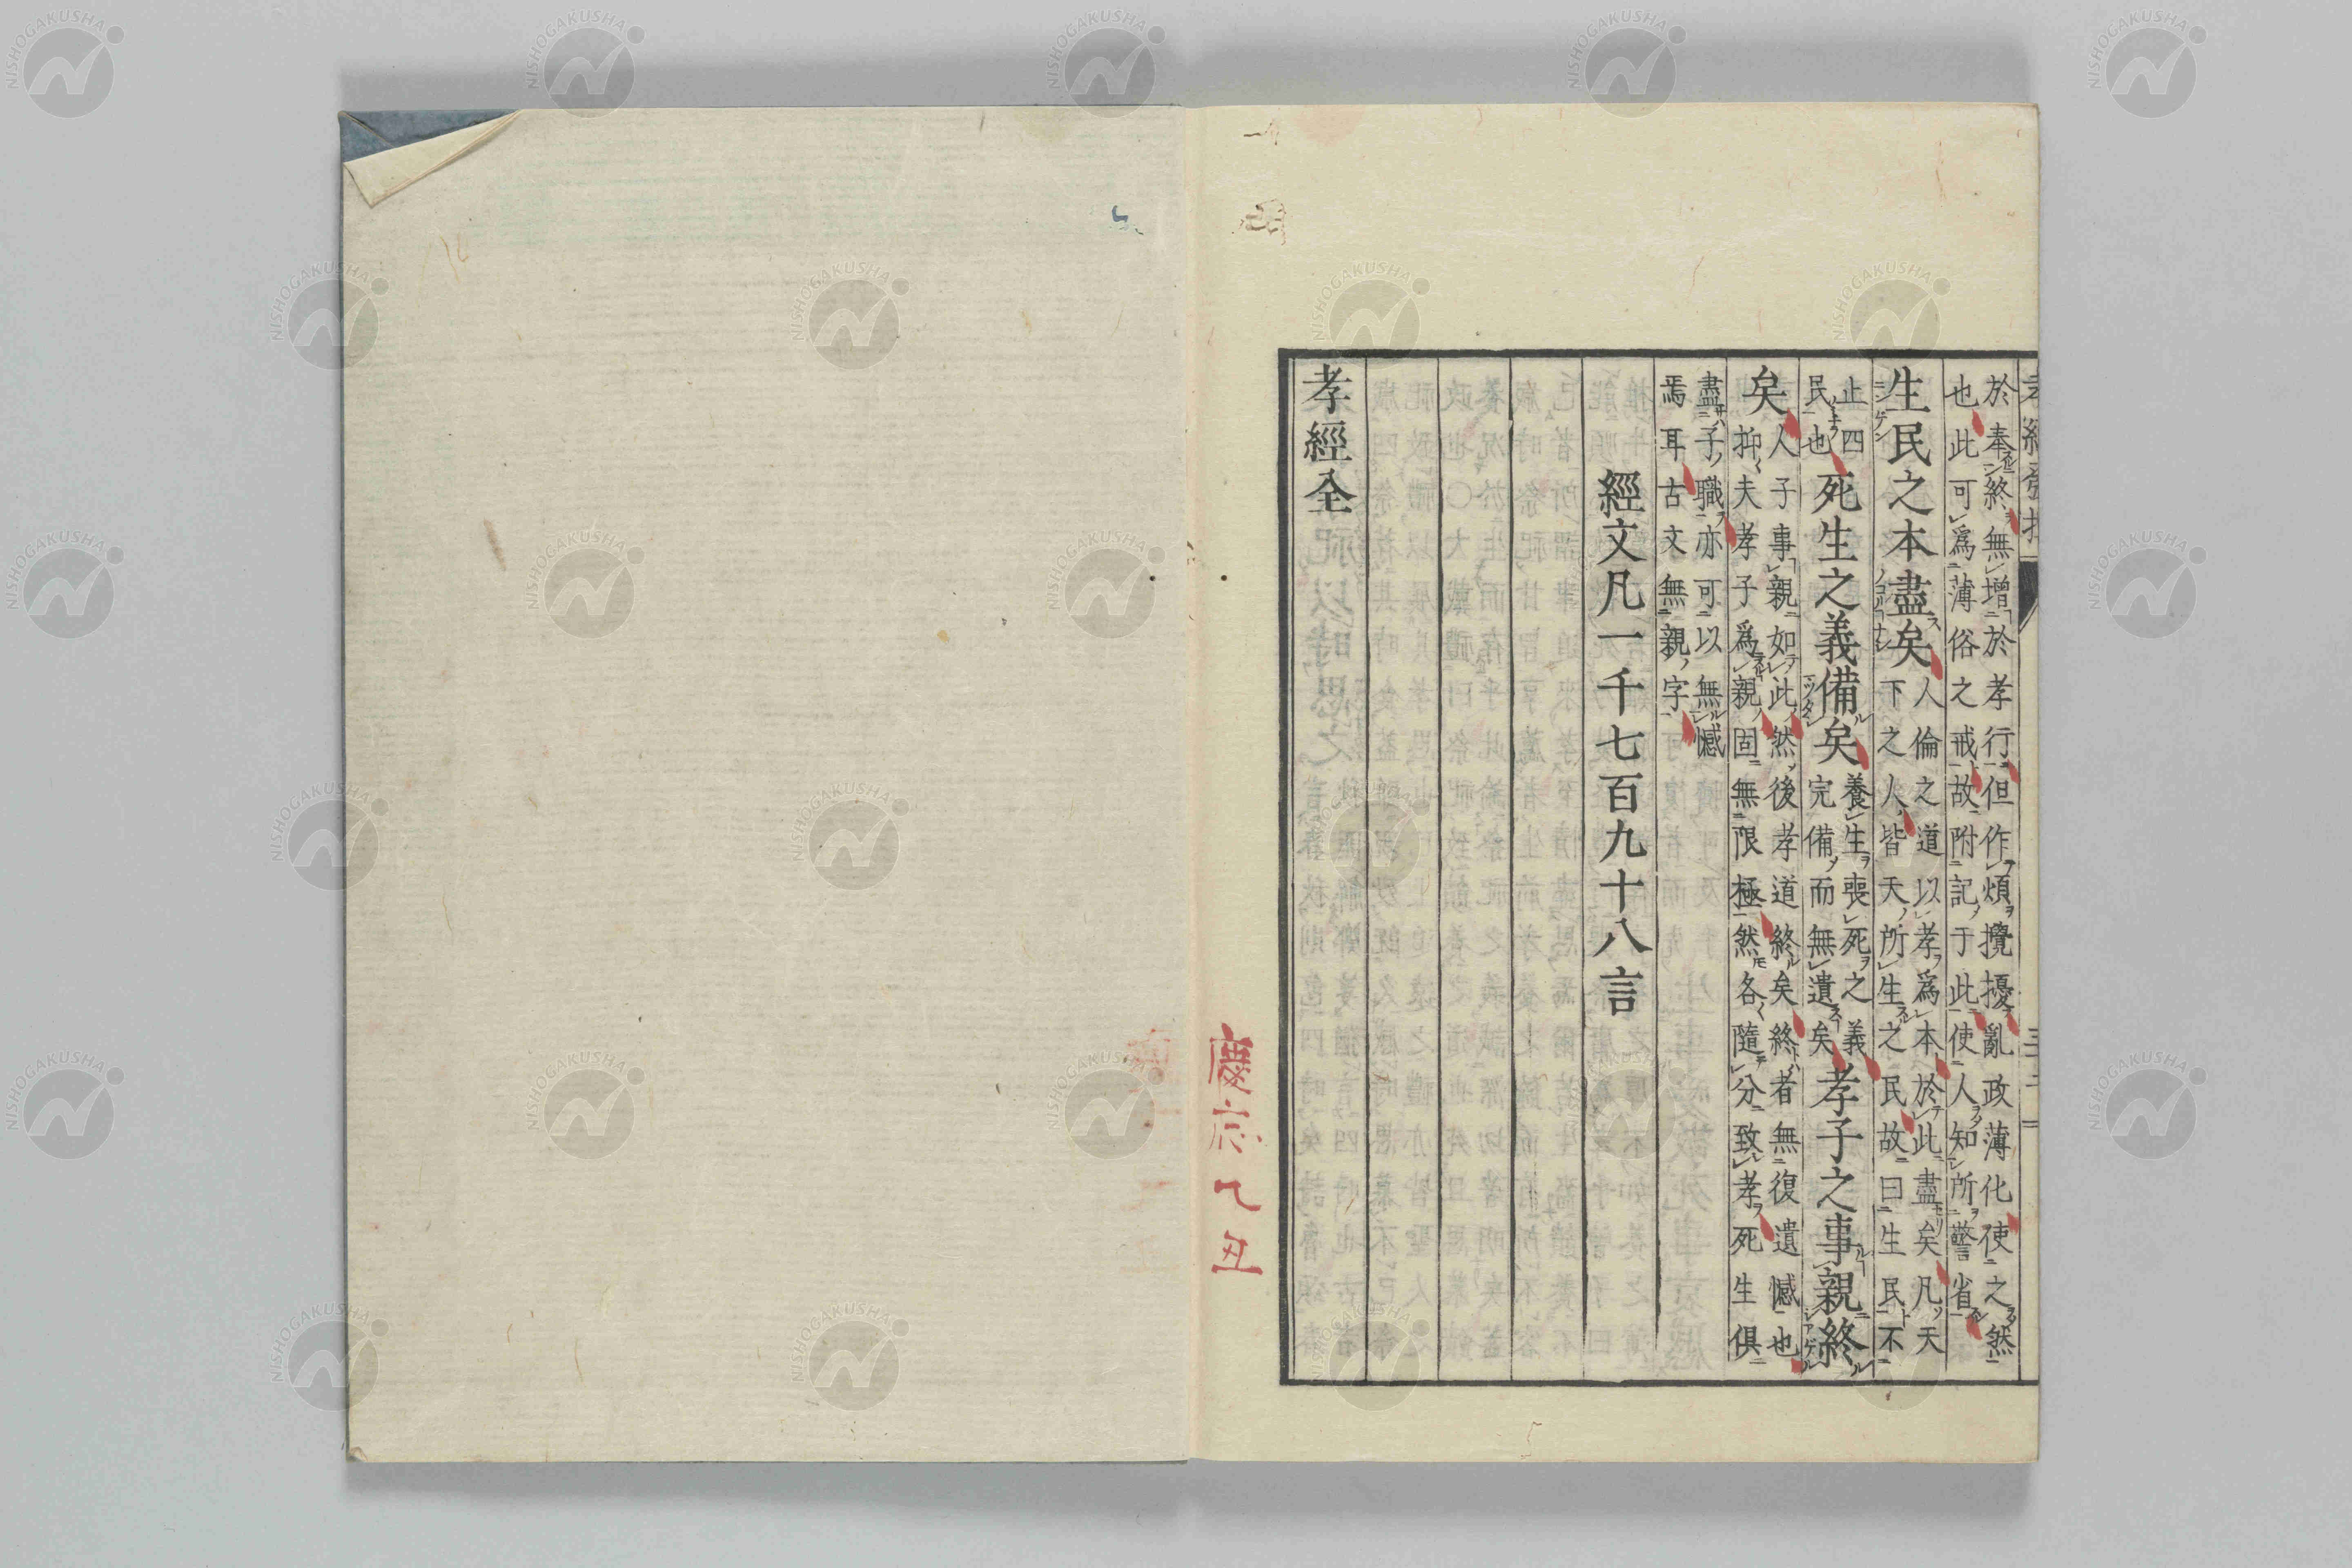 於奉終無增於孝行但作煩攪擾亂政薄化使之然
也此可爲薄俗之戒故附記于此使人知所警省
生民之本盡矣
人倫之道以孝爲本於此盡矣凡天
下之人皆天所生之民故曰生民不
止四
民也
死生之義備矣
養生喪死之義
完備而無遺矣
孝子之事親終
矣
人子事親如此然後孝道終矣終者無復遺憾也
抑夫孝子爲親固無限極然各隨分致孝死生俱
盡子職亦可以無憾
焉耳古文無親字
經文凡一千七百九十八言
孝經全
慶應乙丑
NISHOGAKUSHA